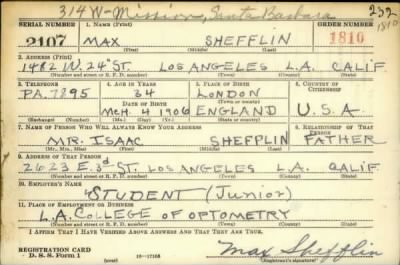 314 W- Mission, Santa Barbara 232
1810
SERIAL NUMBER 1. NAME (Print) ORDER NUMBER
2107 MAX SHEFFLIN 1810
(First) (Middle) (Last)
2. ADDRESS (Print)
1482 W. 24" ST. LOS ANGELES L.A. CALIF
(Number and street or R. F. D. number) (Town) (County) (State)
3. TELEPHONE 4. AGE IN YEARS 5. PLACE OF BIRTH 6. COUNTRY OF CITIZENSHIP
PA. 7895 34 LONDON
DATE OF BIRTH (Town or county)
MCH. 4 1906 ENGLAND U.S.A
(Exchange) (Number) (Mo.) (Day) (Yr.) (State or country)
7. NAME OF PERSON WHO WILL ALWAYS KNOW YOUR ADDRESS 8. RELATIONSHIP OF THAT PERSON
MR. ISAAC SHEFFLIN FATHER
(Mr., Mrs., Miss) (First) (Middle) (Last)
9. ADDRESS OF THAT PERSON
2623 E. 3rd ST. LOS ANGELES L.A. CALIF
(Number and street or R. F. D. number) (Town) (County) (State)
10. EMPLOYER'S NAME
STUDENT (Junior)
11. PLACE OF EMPLOYMENT OR BUSINESS
L.A. COLLEGE OF OPTOMETRY
(Number and street or R. F. D. number) (Town) (County) (State)
I AFFIRM THAT I HAVE VERIFIED ABOVE ANSWERS AND THAT THEY ARE TRUE.
REGISTRATION CARD
D. S. S. Form 1 16-17105 Max Shefflin
(Registrant's signature)